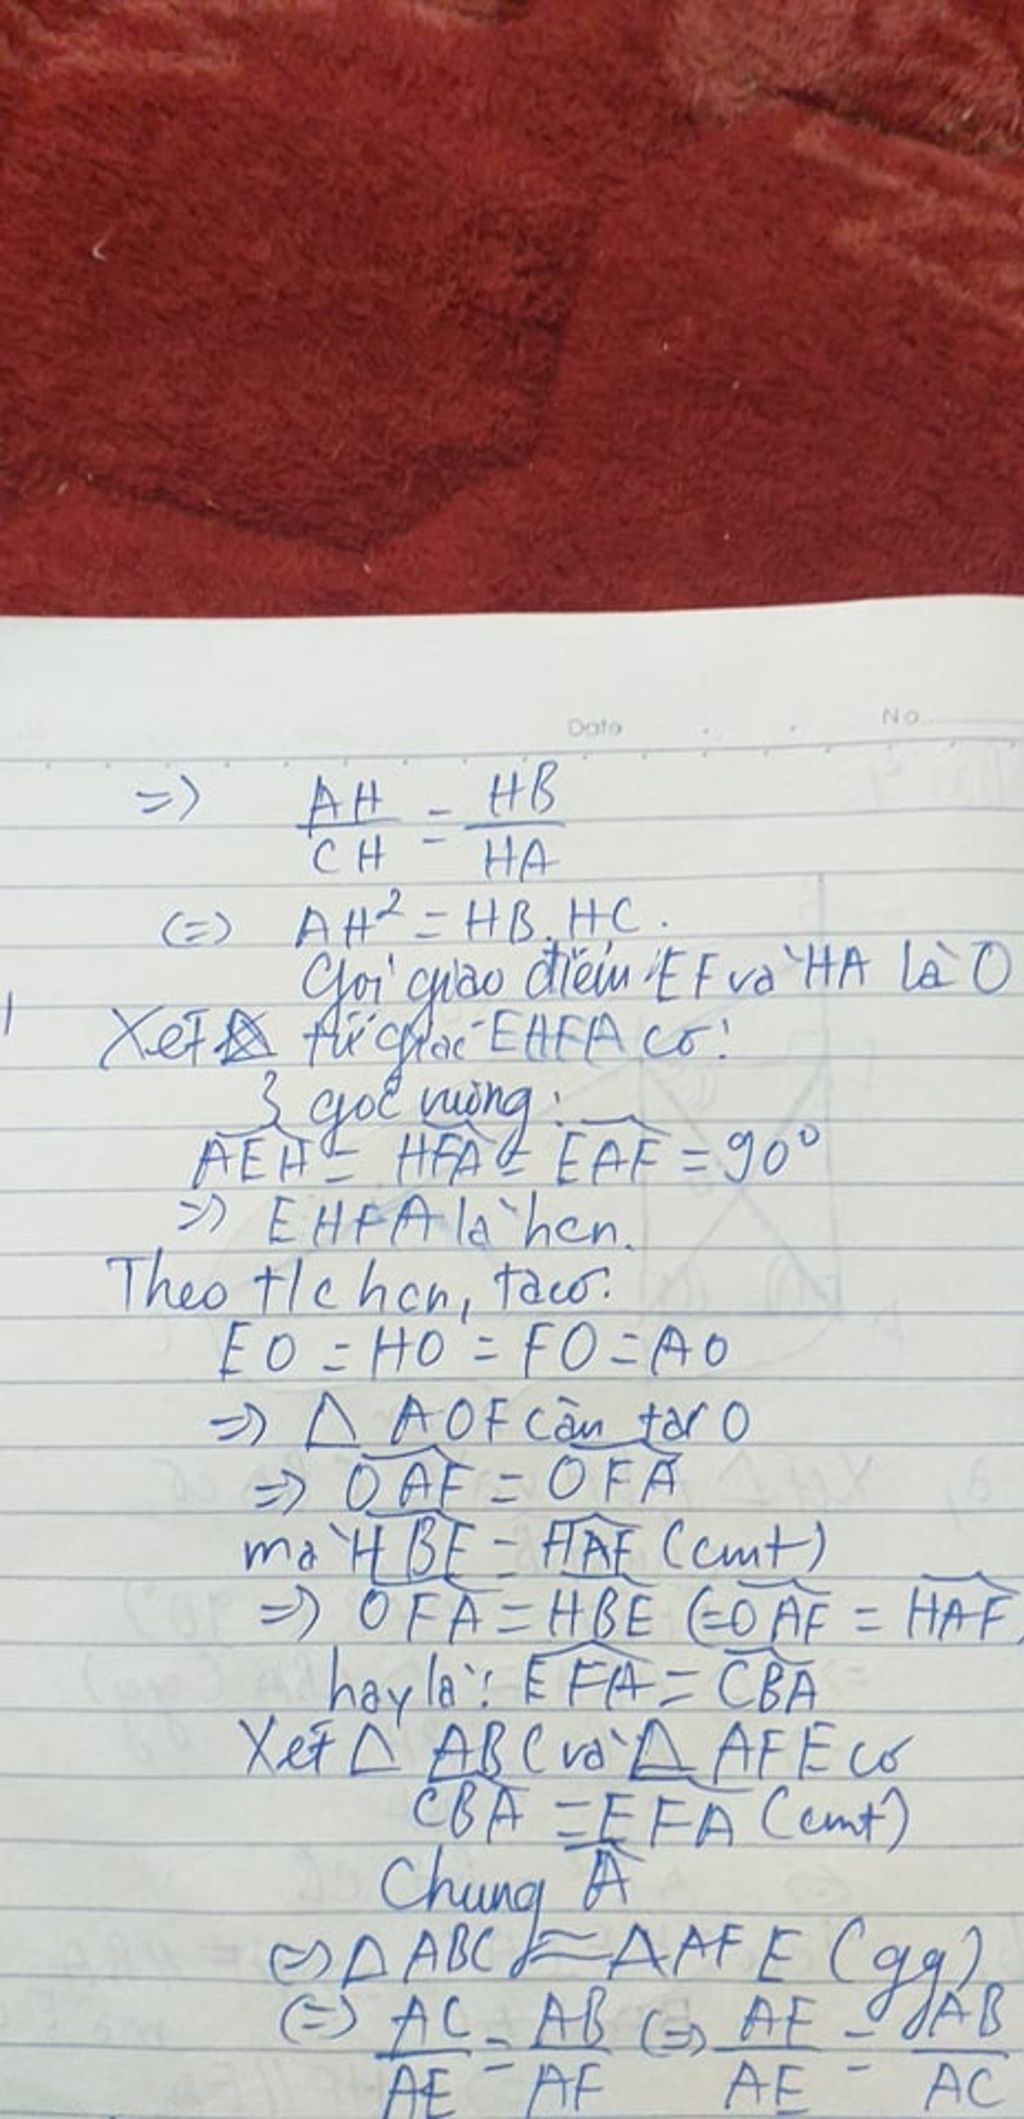 Date No
=> AH/CH = HB/HA
(=) AH² = HB.HC.
Gọi giao điểm EF và HA là O
Xét tứ giác EHFA có:
3 góc vuông:
AEH = HFA = EAF = 90°
=> EHFA là hcn.
Theo t/c hcn, ta có:
EO = HO = FO = AO
=> Δ AOF cân tại O
=> OAF = OFA
mà HBE = HAF (cmt)
=> OFA = HBE (=OAF = HAF)
hay là: EFA = CBA
Xét Δ ABC và Δ AFE có
CBA = EFA (cmt)
Chung A
(=) Δ ABC ≈ Δ AFE (gg)
(=) AC/AE = AB/AF (=) AF/AE = AB/AC